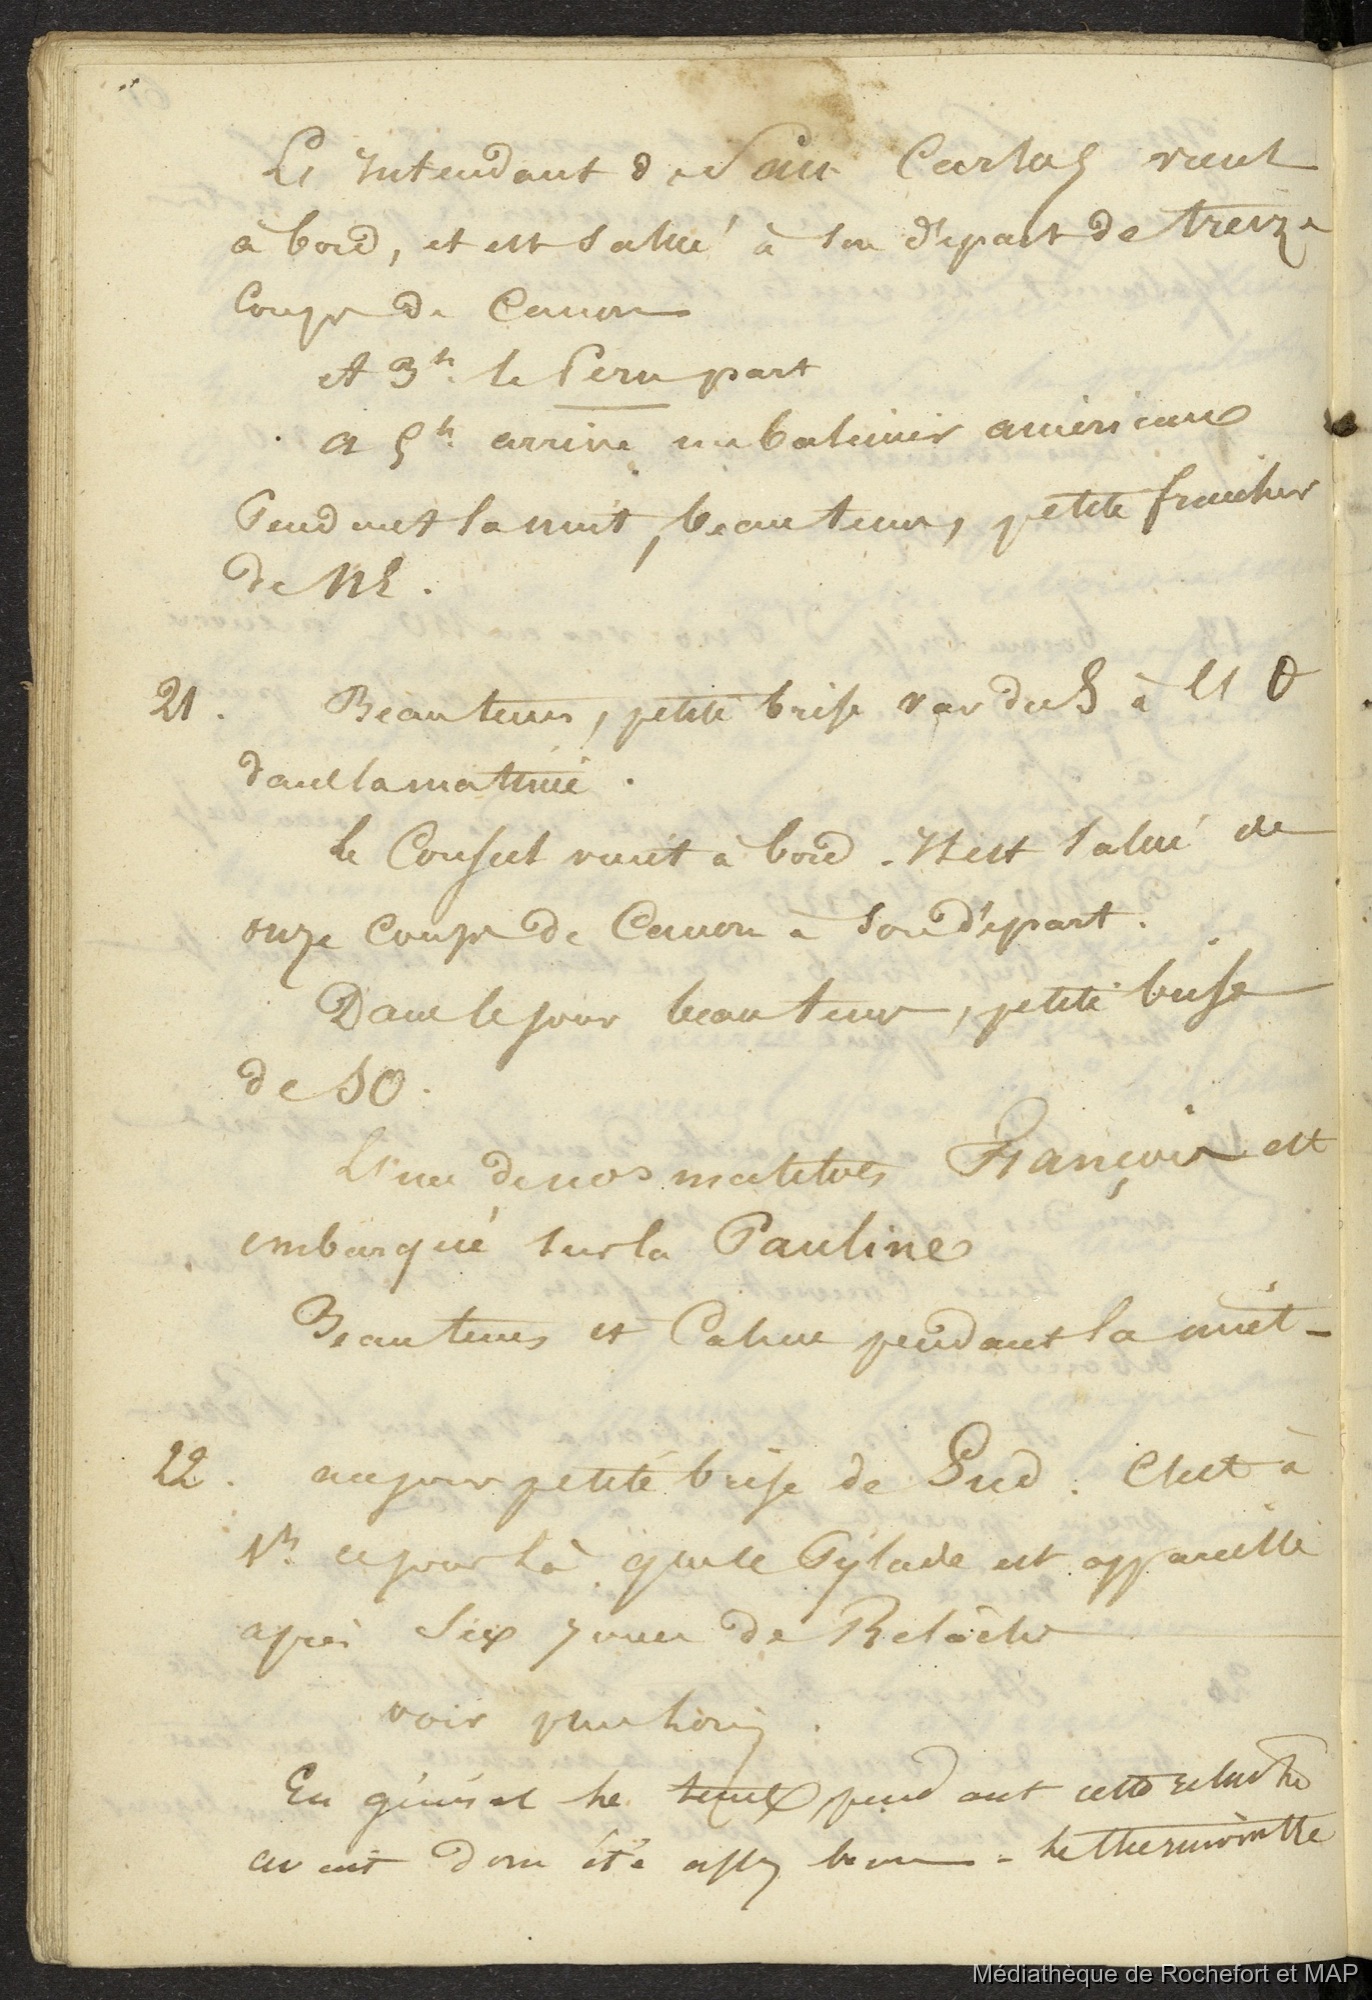 L'Intendant de San Carlos vient
à bord, et est salué à son départ de treize
Coups de Canon
A 3h. le Peru part
a 5h. arrive un baleinier americain
Pendant la nuit, beau tems, petite fraicheur
de NE.
21. Beau tems, petite brise var du S à l'O
dans la matinée.
le Consul vient à bord. Il est salué de
onze Coups de Canon à son départ.
Dans le jour beau tems, petite brise
de SO.
L'un de nos matelots François est
embarqué sur la Pauline
Beau tems et Calme pendant la nuit -
22. au jour petite brise de Sud. C'est à
1h. ce jour là que le Pylade est appareillé
après Six Jours de Relâche
voir plus loin.
En général le tems pendant cette relache
avait donc été assez beau - le thermomètre
Médiathèque de Rochefort et MAP